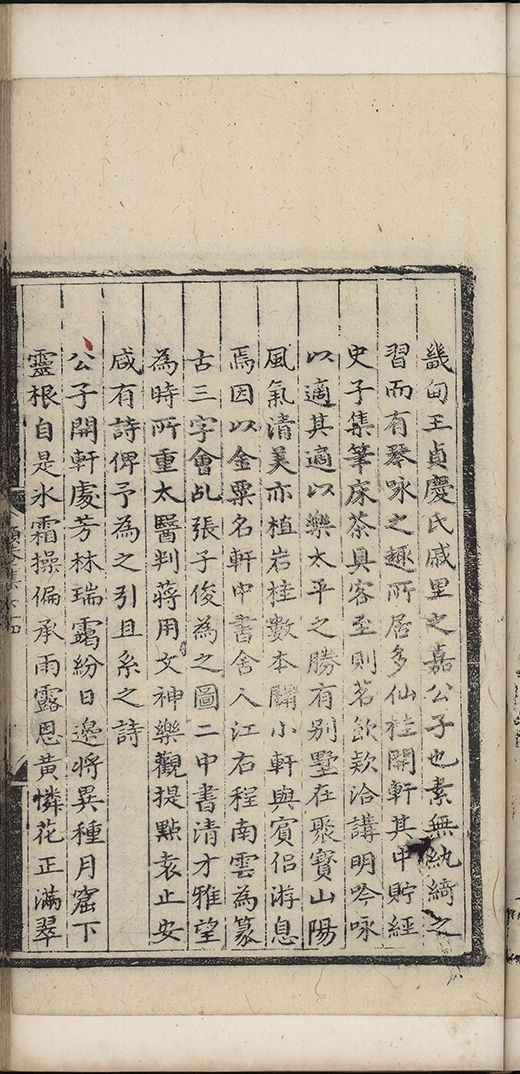 畿甸王貞慶氏戚里之嘉公子也素無紈綺之
習而有琴咏之趣所居多仙桂開軒其中貯經
史子集筆床茶具客至則茗飲欵洽講明吟咏
以適其適以樂太平之勝有别墅在聚寳山陽
風氣清美亦植岩桂數本闢小軒與賓侣游息
焉因以金粟名軒中書舍人江右程南雲為篆
古三字會乩張子俊為之圖二中書清才雅望
為時所重太醫判蔣用文神樂觀提點袁止安
咸有詩俾予為之引且系之詩
公子開軒處芳林瑞靄紛日邊將異種月窟下
靈根自是氷霜操偏承雨露恩黄憐花正滿翠